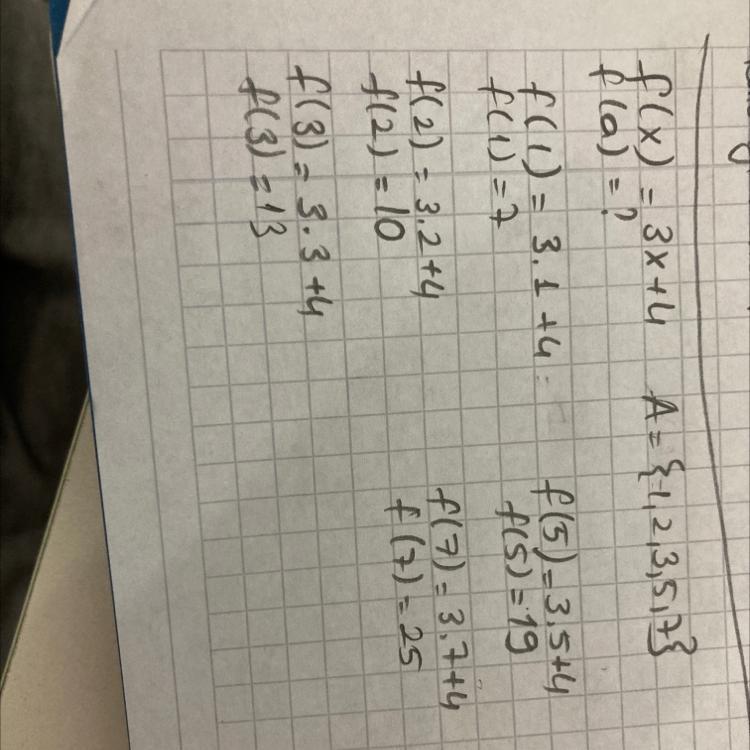 f(x) = 3x+4 A = {1,2,3,5,7}
f(a) = ?
f(1) = 3.1+4
f(1) = 7
f(2) = 3.2+4
f(2) = 10
f(3) = 3.3+4
f(3) = 13
f(5) = 3.5+4
f(5) = 19
f(7) = 3.7+4
f(7) = 25